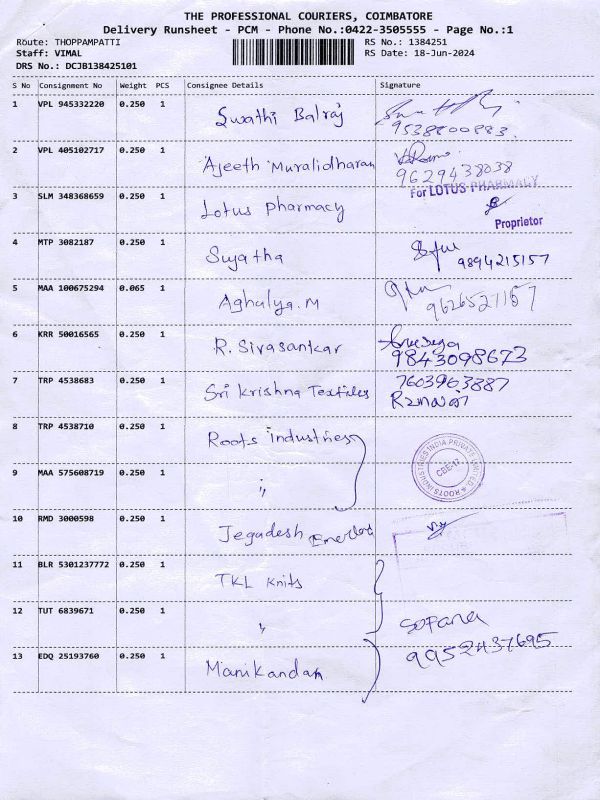 THE PROFESSIONAL COURIERS, COIMBATORE
Delivery Runsheet - PCM - Phone No.:0422-3505555 - Page No.:1
Route: THOPPAMPATTI RS No.: 1384251
Staff: VIMAL RS Date: 18-Jun-2024
DRS No.: DCJB138425101
S No Consignment No Weight PCS Consignee Details Signature
1 VPL 945332220 0.250 1 Swathi Balraj
9538800883
2 VPL 405102717 0.250 1 Ajeeth Muralidharan
9629438038
3 SLM 348368659 0.250 1 Lotus Pharmacy
For LOTUS PHARMACY
Proprietor
4 MTP 3082187 0.250 1 Sujatha
9894215157
5 MAA 100675294 0.065 1 Aghalya.M
9626527157
6 KRR 50016565 0.250 1 R. Sivasankar
9843098673
7 TRP 4538683 0.250 1 Sri Krishna Textiles
7603963887
8 TRP 4538710 0.250 1 Roots industries
ROOTS INDUSTRIES INDIA PRIVATE LIMITED
CBE-17
9 MAA 575608719 0.250 1 "
10 RMD 3000598 0.250 1 Jegadesh
11 BLR 5301237772 0.250 1 TKL Knits
12 TUT 6839671 0.250 1 "
Sopana
9952437695
13 EDQ 25193760 0.250 1 Manikandan